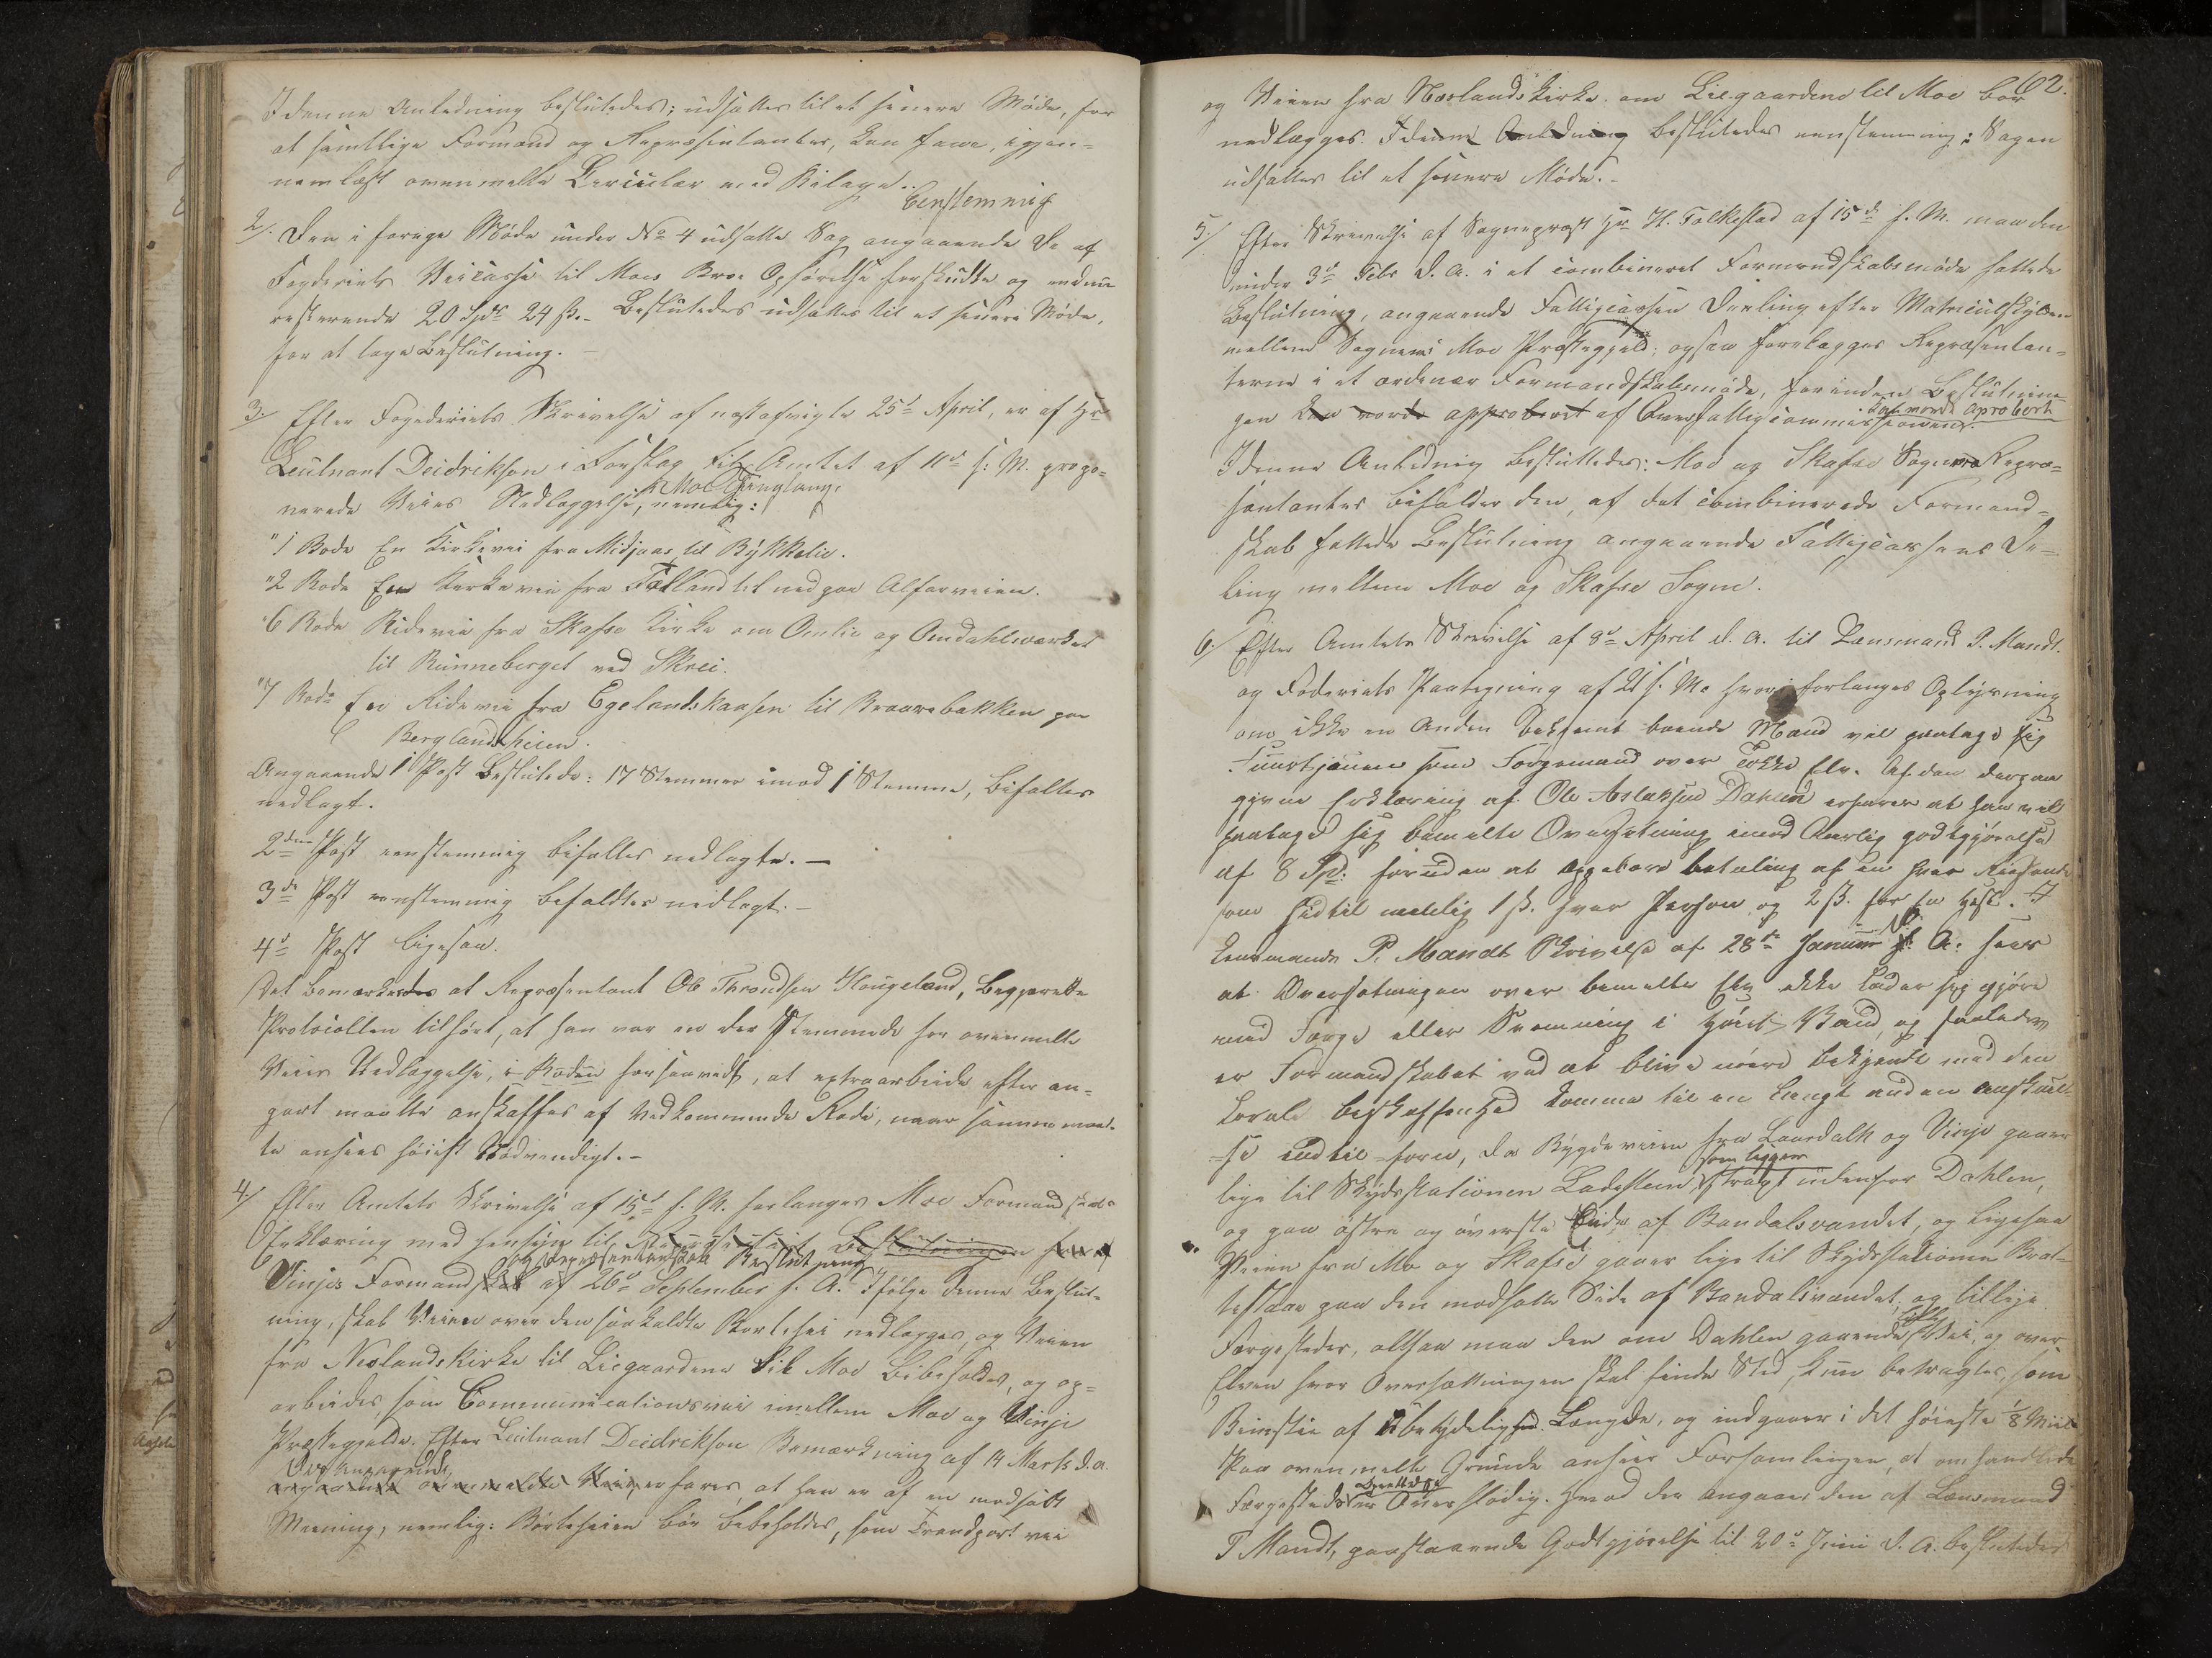 I denne Anledning besluttedes: udsættes til et senere Møde, for
at samtlige Formænd og Repræsentanter, kan faae, igjen-
nemlæst ovenmelte Circulær med Bilage.
Eenstemmig
2/. Den i forige Møde under No 4 udsatte Sag angaaende De af
Fogderiets Veicasse til Moes Broe Opførelse forskudte og endnu
resterende 20 Spd 24 ß. - Besluttedes udsættes til et senere Møde,
for at tage Beslutning. -
3/ Efter Fogderiets Skrivelse af næstafvigte 25d April, er af Hr
Leutnant Deidrikson i Forslag til Amtet af 11te f: M. propo-
nerede Veies Nedlæggelse, nemlig:
i Moe Tinglaug.
"1 Rode En Kirkevei fra Midjaas til Bykkelie.
"2 Rode En Kirkevei fra Tælland til ned paa Alfarveien.
"6 Rode Ridevei fra Skafse Kirke om Omlie og Omdahlsværket
til Runneberget ved Skrei.
"7 Rode En Ridevei fra Egelandskaasen til Braarebakken paa
Berglandsheien.
Angaaende 1 Post Besluttede: 17 Stemmer imod 1 Stemme, bifaltes
nedlagt.
2den Post eenstemmig bifaltes nedlagte. -
3de Post eenstemmig befaldtes nedlagt. -
4de Post ligesaa.
Det bemærkedes at Repræsentant Ole Throndsen Haugeland, begjærede
Protocollen tilført, at han var en der Stemmede for ovenmelte
Veies Nedlæggelse, i Roden forsaavidt, at extraarbeide efter an-
gaaet maatte anskaffes af vedkommende Rode, naar saamme maat-
te ansees høiest Nødvendigt. -
4/ Efter Amtets Skrivelse af 15de f. M. forlanges Moe Formandskabs
Erklæring med hensyn til Beslutningen fra
og Repræsentantskab Beslutning
Vinjes Formandskab af 26de September f. A. Ifølge denne Beslut-
ning, skal Veien over den saakaldte Bortehei nedlægges, og Veien
fra Neslandskirke til Liegaardene til Moe Bibeholdes, og op-
arbeides, som Communicationsvei imellem Moe og Vinje
Præstegjelde. Efter Leutnant Deidrikson Bemærkning af 14 Marts d. a.
Des angaaende
angaaende ovenmeldte Veie, erfares, at han er af en modsatt
Meening, nemlig: Børteheien bør bebeholdes, som Trandsport vei
62.
og Veien fra Næslandskirke om Liegaardene til Moe bør
nedlægges. I denne Anledning besluttedes eenstemmig: Sagen
udsættes til et senere Møde. -
5/ Efter Skrivelse af Sognepræst Hr H. Folkestad af 15de f. M. maa den
under 3de Febr d. A. i et combineret Formandskabsmøde fattede
Beslutning, angaaende Fattigcassen Deeling efter Matriculskylden
mellem Sognene i Moe Præstegjeld; ogsaa forelægges Repræsentan-
terne i et ordenær Formandskabsmøde, forinden Beslutnin-
gen kan vorde approberet af Overfattigcommissionen.
kan vorde aproberet
I denne Anledning besluttedes: Moe og Skafse Sognes Repræ-
sentanter bifalder den, af det combinerede Formand-
skab fattede Beslutning angaaende Fattigcassens De-
ling mellem Moe og Skafse Sogne.
6/ Efter Amtets Skrivelse af 8de April d. A. til Lænsmand P. Mandt.
og Foderiets Paategning af 21 s. M. hvori forlanges Oplysning
om ikke en Anden bekvemt boende Mand vil paatage sig
Tienesten som Færgemand over Tokke Elv. Af den derpaa
givne Erklæring af Ole Aslaksen Dahlen erfares at han vil
paatage sig bemelte Oversætning imod Aarlig godtgjørelse
af 8 Spd: foruden at oppebære betaling af en hver Reisende
som hidtil nemlig 1 ß. hver Person og 2 ß. for en Hest. I
Lensmands P. Mandt Skrivelse af 28de Januar d. A. sees
at Oversætningen over bemelte Elv ikke lader sig gjøre
med Færge eller Svømning i høiest Vand, og saaledes
er Formandskabet ved at blive nøiere bekjendt med den
Locale beskaffenhed komme til en langt anden anskuel-
se end til-forn, da Bygdeveien fra Laurdalh og Vinje gaaer
som ligger
lige til Skydsstationen Ladesteen strax udenfor Dahlen,
og paa østre og øverste Ende af Bandalsvandet, og ligesaa
Veien fra Mo og Skafse gaaer lige til Skydsstationen Brat-
testaae paa den modsatte Side af Bandalsvandet, og tillige
Færgesteder, altsaa maa den om Dahlen gaaende Vei, og over
Elven hvor Oversætningen skal finde Sted, kun betragtes, som
Beinstie af ubetydelig Længde, og indgaaer i det høieste 1/8 Miil
Paa ovenmelte Grunde ansees Forsamlingen, at omhandlede
Færgested er Overflødig. Hvad der angaaer den af Lænsmand
P Mandt, paastaaende Godtgjørelse til 20de Juni d. A. besluttedes